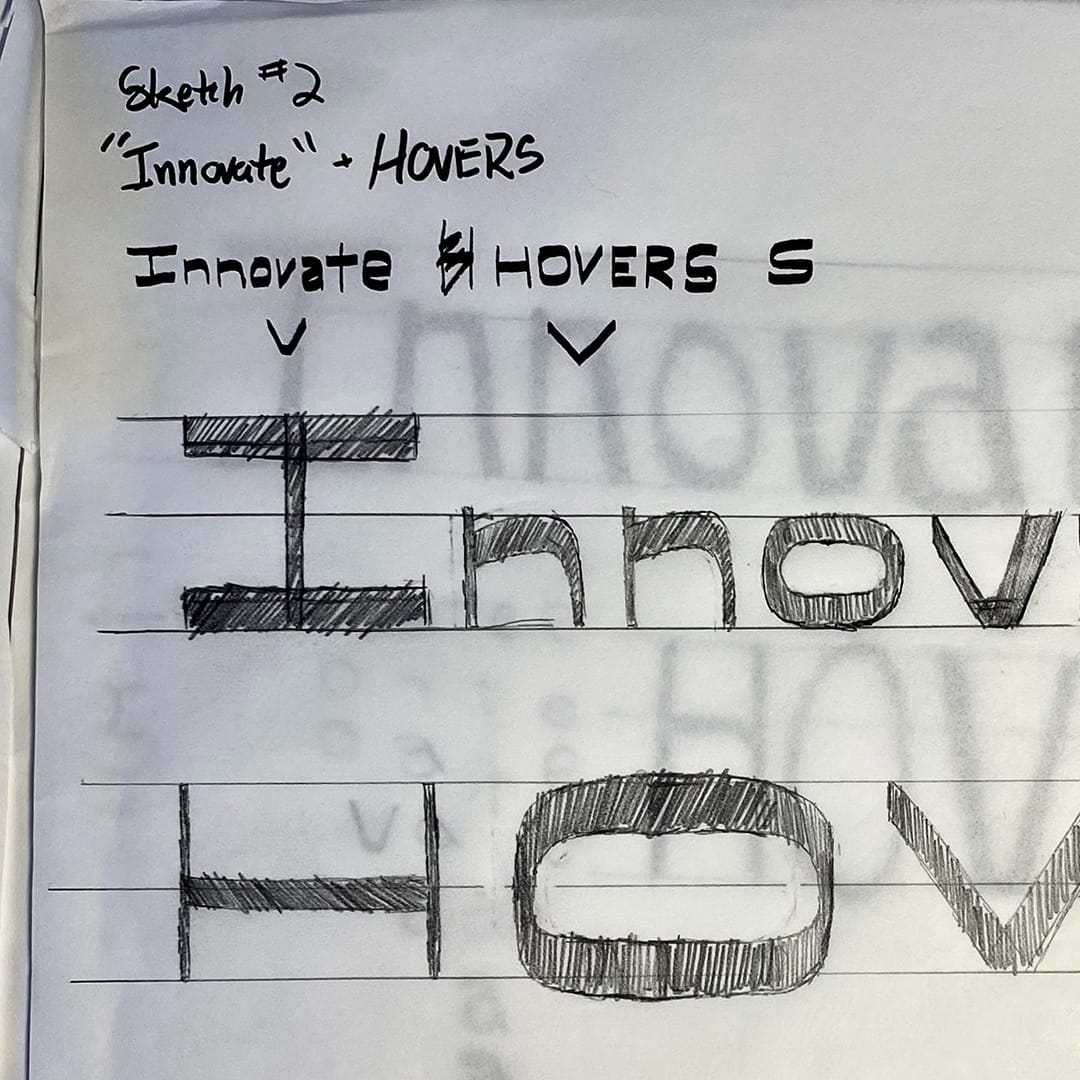 Sketch #2
"Innovate" + HOVERS
Innovate HOVERS S
V V
Innov
HOV